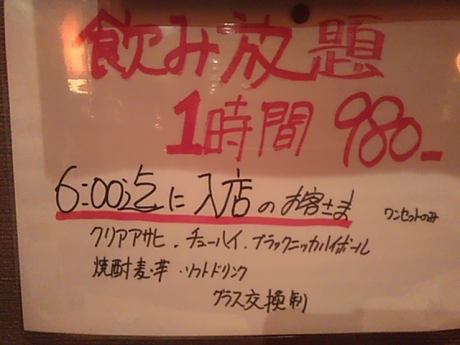 飲み放題
1時間 980-
6:00迄に入店のお客さま ワンセットのみ
クリアアサヒ・チューハイ・ブラックニッカハイボール
焼酎麦・芋・ソフトドリンク
グラス交換制